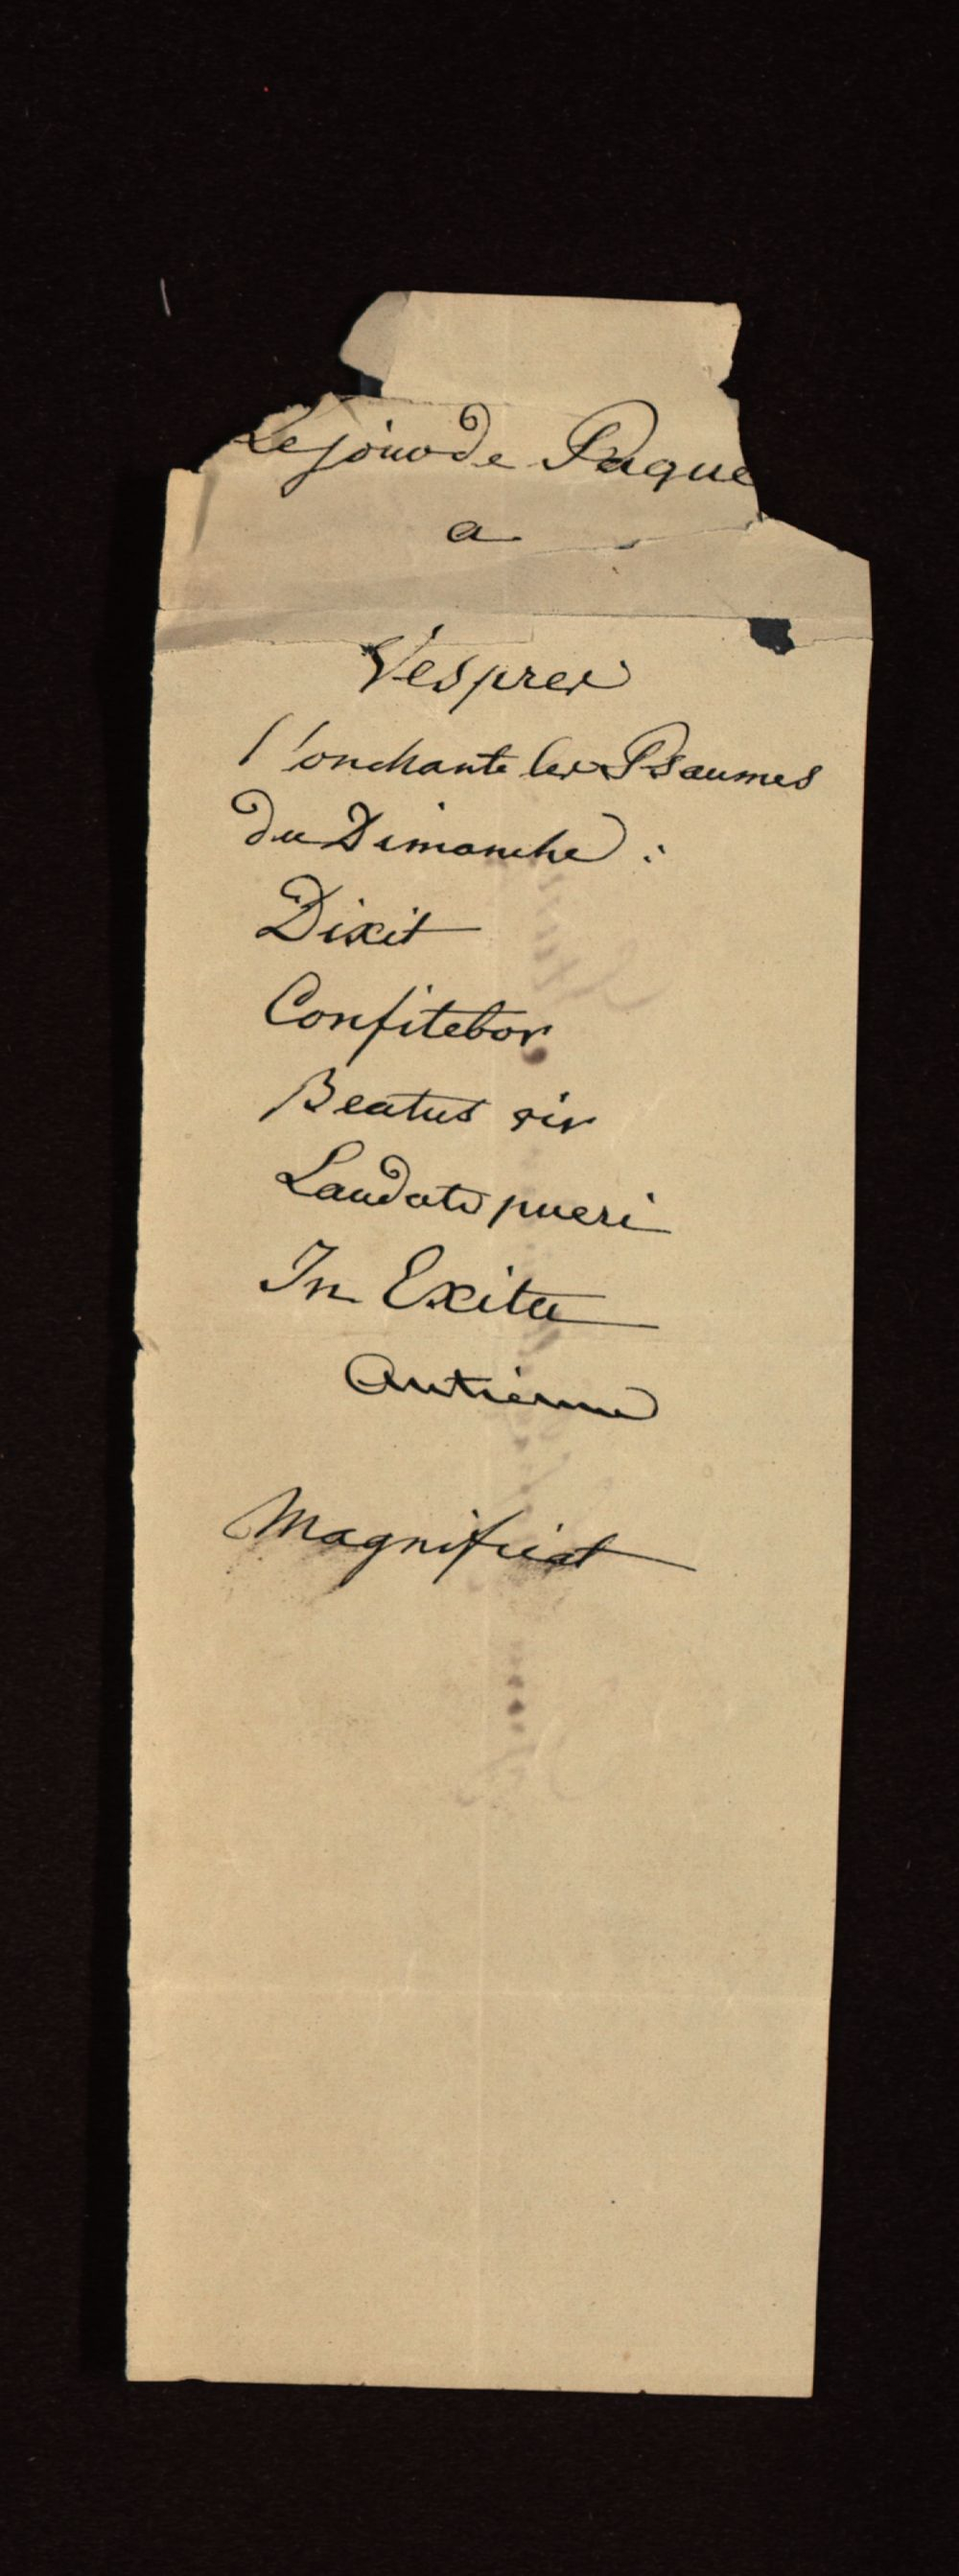 Le jour de Paque
a
Vespres
l'on chante les Psaumes
du Dimanche :
Dixit
Confitebor
Beatus vir
Laudate pueri
In Exitu
Antienne
Magnificat